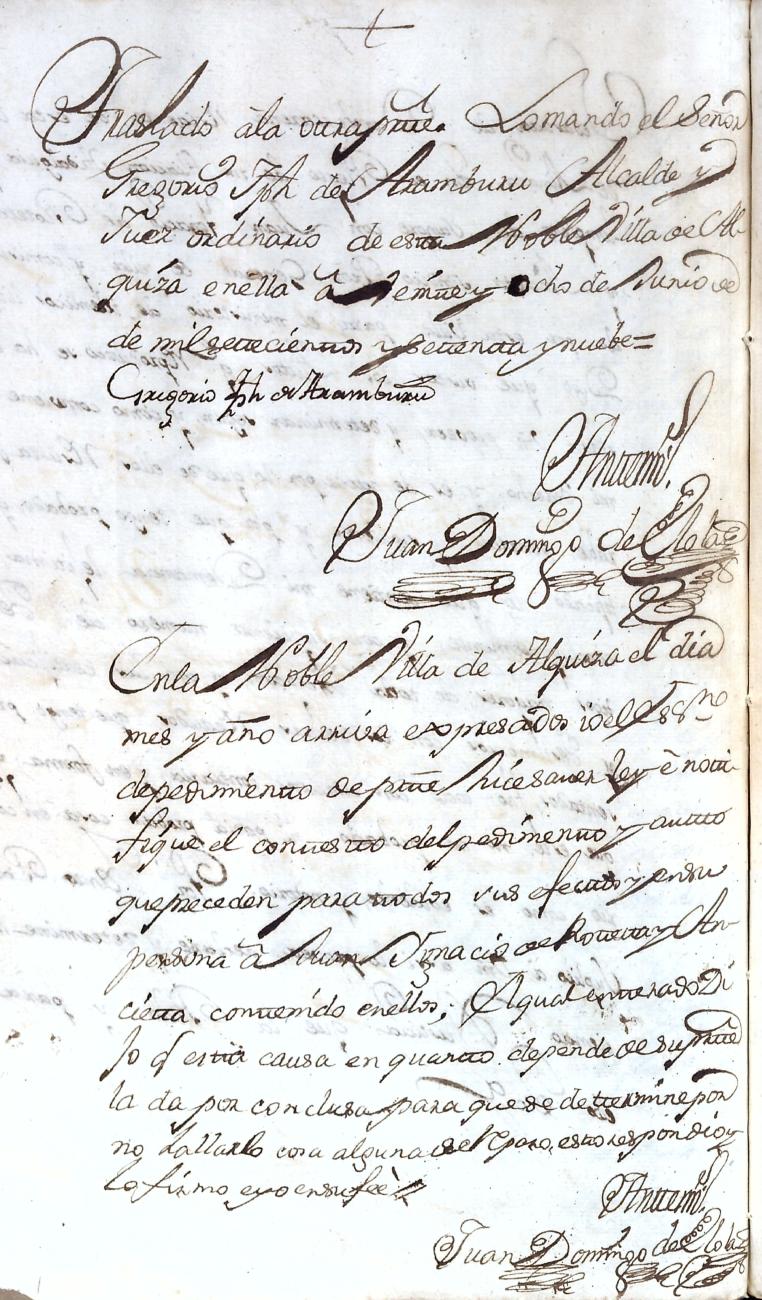 Traslado ala otra pñte. Lo mando el Señor
Gregorio Jph de Aramburu Alcalde y
Juez ordinario de esta Noble Villa de Al-
quiza en ella â Veinte y ocho de Junio de
de mil settecientos y setenta y nuebe=
Gregorio Jph de Aramburu
Antemi.
Juan Domingo de
En la Noble Villa de Alquiza el dia
mes y año arriva expresados io el Essno
de pedimiento de pñte hice saver ley ê noti-
fique el contesto del pedimento y autto
que preceden para todos sus efectos y en su
persona â Juan Ignacio de Rotteta y An-
cietta contenido en ellos; Aqual enterado Di
Jo q esta causa en quanto depende de su pñte
la da por conclusa para que se dettermine por
no hallarlo cosa alguna de reparo, esto respondio y
lo firmo e yo en su feè
Antemi
Juan Domingo de